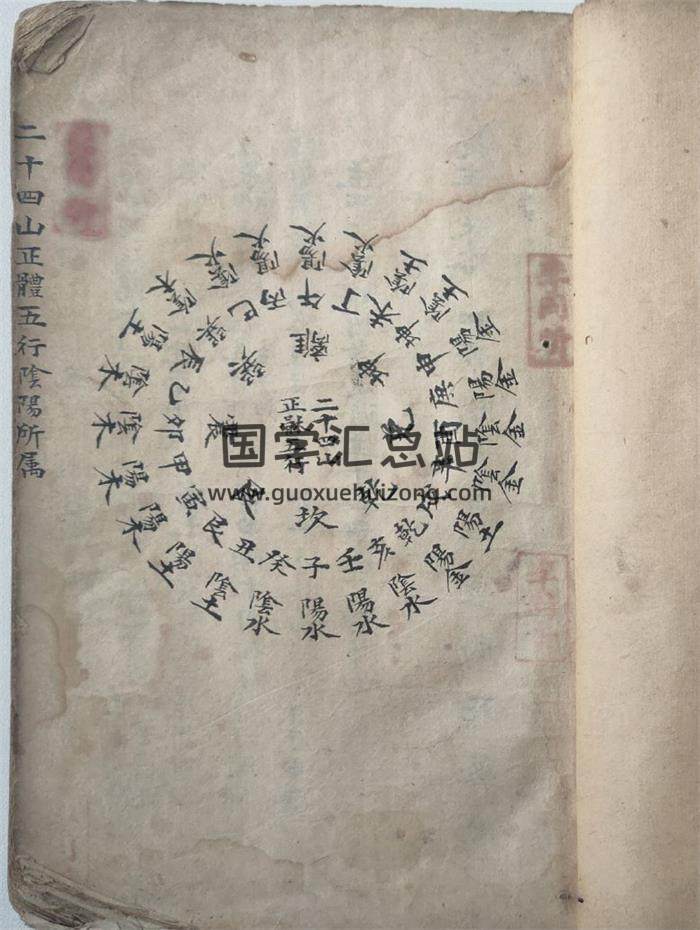 二十四山正體五行陰陽所属
二十四山
正體五行
離 坤 兌 乾 坎 艮 震 巽
午 丁 未 坤 申 庚 酉 辛 戌 乾 亥 壬 子 癸 丑 艮 寅 甲 卯 乙 辰 巽 巳 丙
陽火 陰火 陰土 陰土 陽金 陽金 陰金 陰金 陽土 陽金 陰水 陽水 陽水 陰水 陰土 陽土 陽木 陽木 陰木 陰木 陽土 陰木 陰火 陽火
国学汇总站
www.guoxuehuizong.com